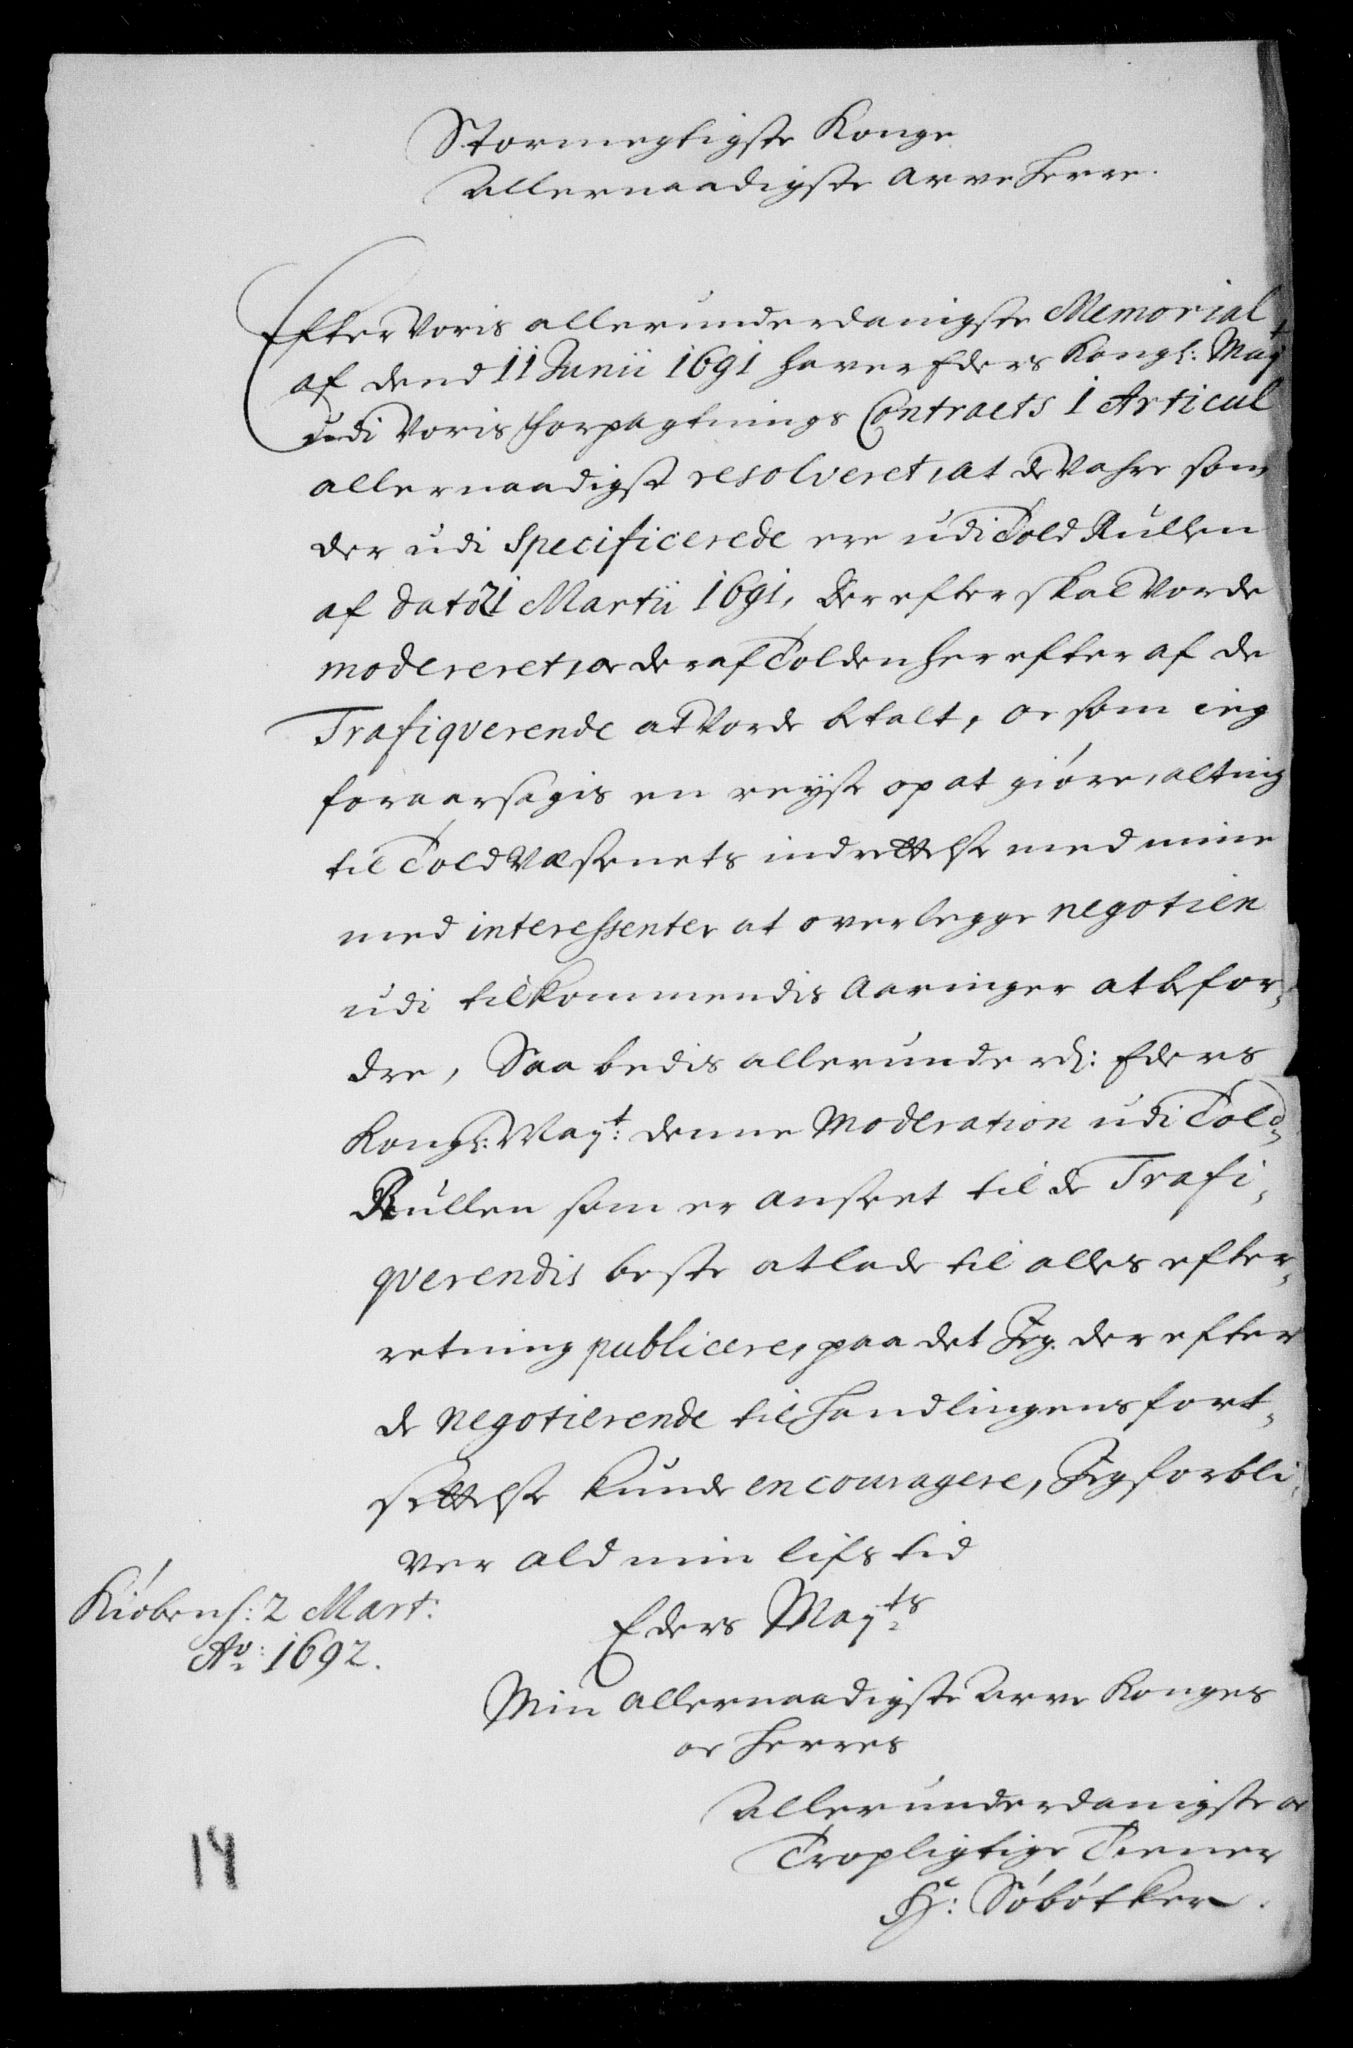 Stormegtigste Konge
Allernaadigste Arve Herre.
Efter Voris allerunderdanigste Memorial
af dend 11 Junii 1691 haver Eders Kongl: Mayt
udi Voris forpagtnings Contracts 1 Articul
allernaadigst resolveret, at de Vahre som
der udi Specificerede ere udi Told Rullen
af dato 21 Martii 1691, derefter skal Vorde
modereret, oc deraf Tolden herefter af de
Trafiqverende at Vorde betalt, oc som ieg
foraarsagis en reyse op at giöre, alting
til Told Væsenets indrettelse med mine
med interessenter at overlegge negotien
udi tilkommendis Aaringer at befor,
dre, Saa bedis allerunderd: Eders
Kongl: Mayt: denne Moderation udi Told,
Rullen som er anseet til de Trafi,
qverendis beste at lade til alles efter,
retning publicere, paa det Jeg derefter
de Negotierende til Handlingens fort,
settelse kunde encouragere, Jeg forbli,
ver ald min lifs tid
Kiöbenh: 2 Mart:
Ao: 1692.
Eders Mayts
Min Allernaadigste Arve Konges
oc Herres
Allerunderdanigste oc
Tropligtige Tiener
H: Söbötker.
14